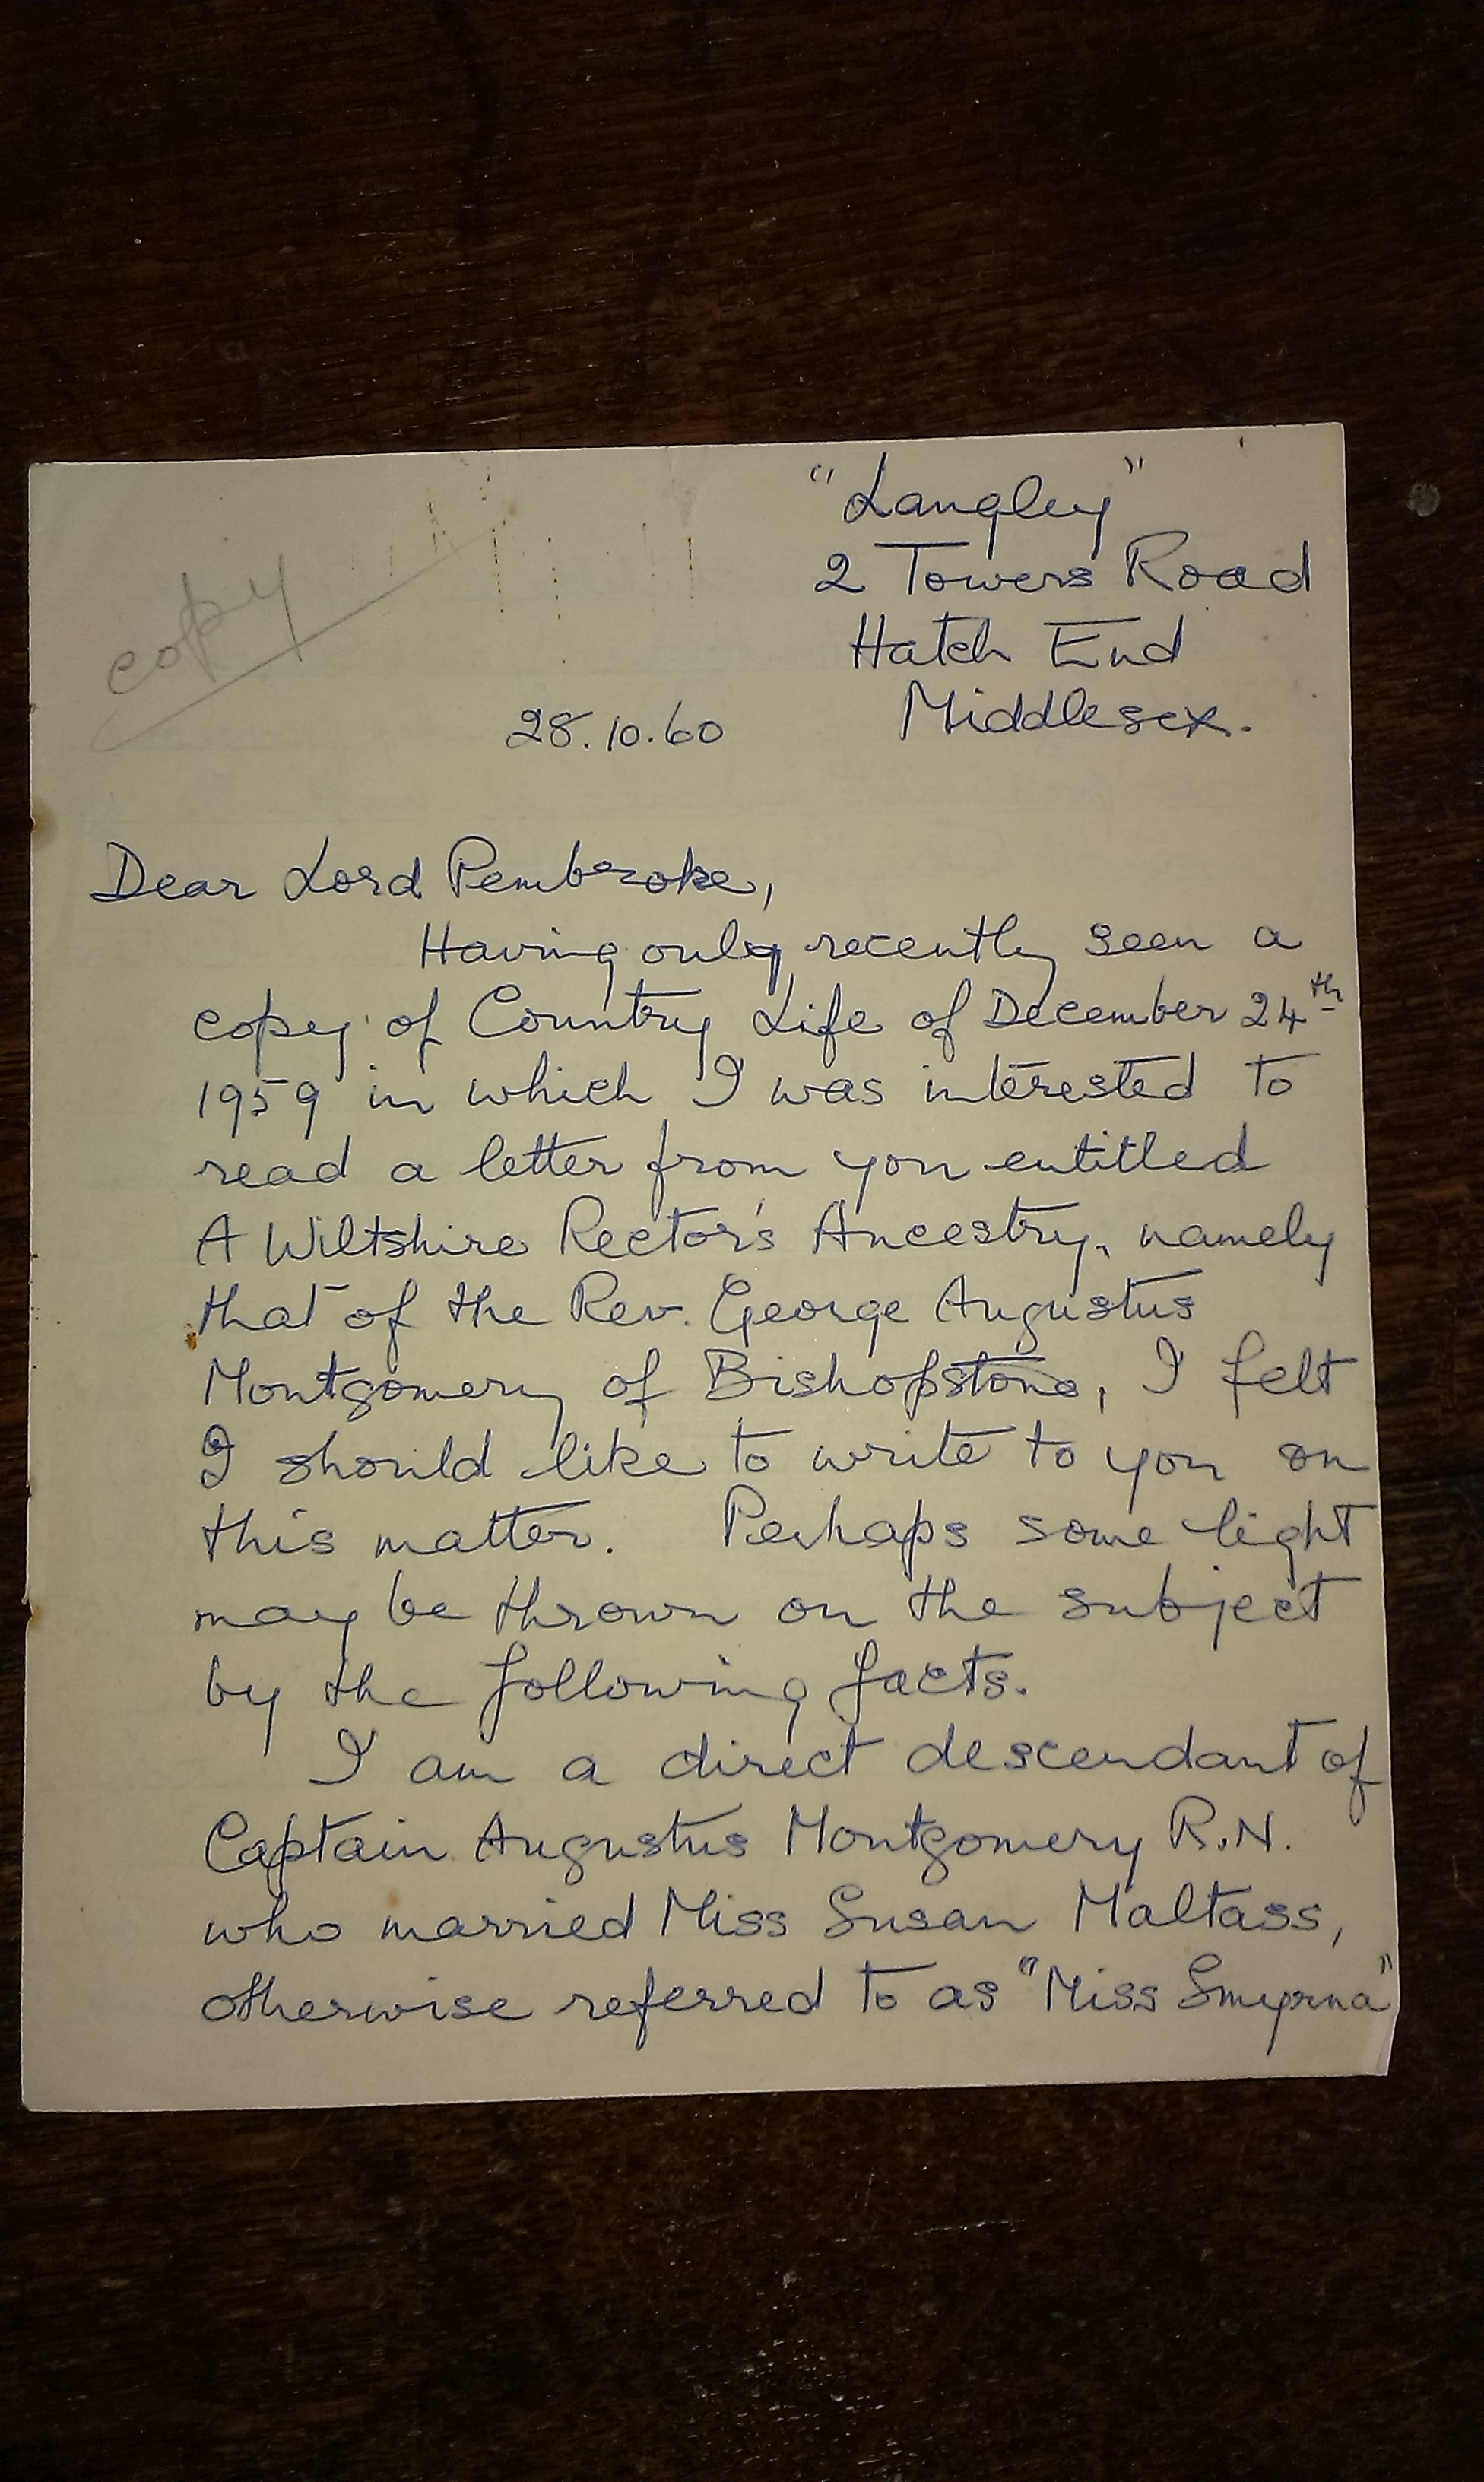 "Langley"
2 Towers Road
Hatch End
Middlesex.
copy
28.10.60
Dear Lord Pembroke,
Having only recently seen a
copy of Country Life of December 24th
1959 in which I was interested to
read a letter from you entitled
A Wiltshire Rector's Ancestry, namely
that of the Rev. George Augustus
Montgomery of Bishopstone, I felt
I should like to write to you on
this matter. Perhaps some light
may be thrown on the subject
by the following facts.
I am a direct descendant of
Captain Augustus Montgomery R.N.
who married Miss Susan Maltass,
otherwise referred to as "Miss Smyrna"